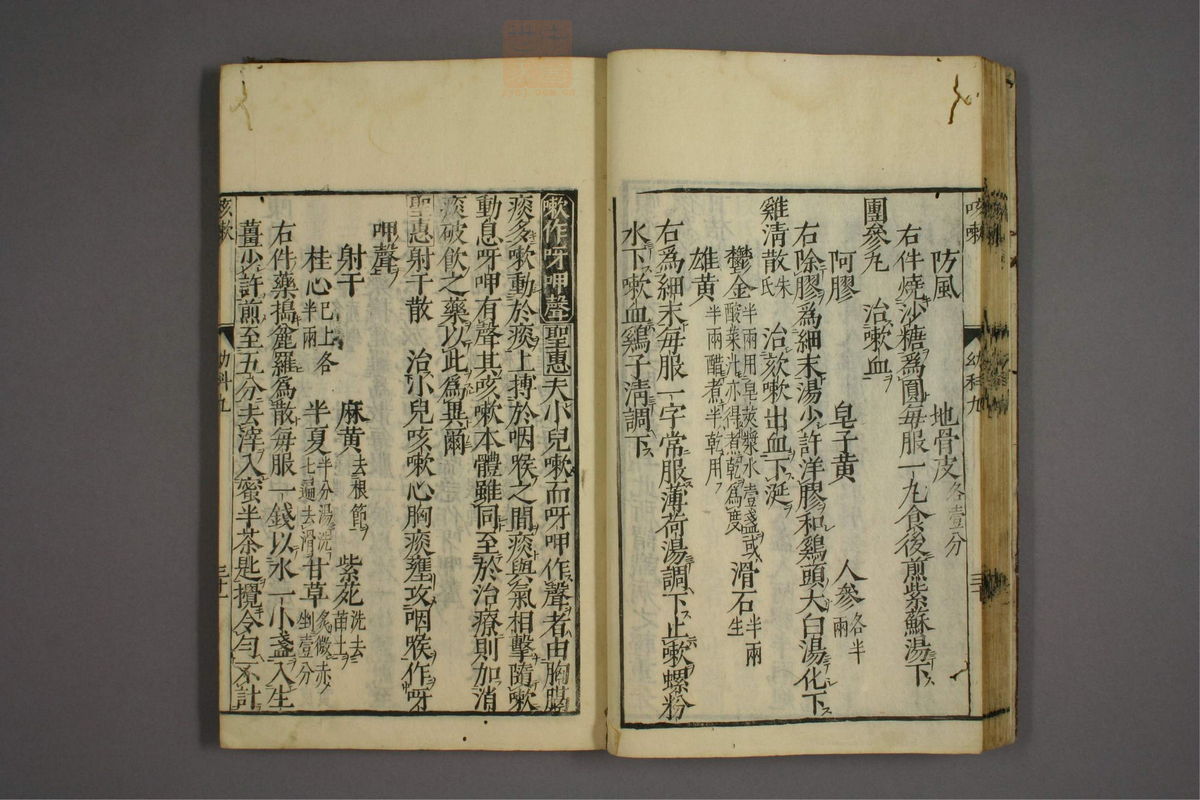 咳嗽 幼科九 三十
防風 地骨皮各壹分
右件燒沙糖爲圓每服一丸食後煎紫蘇湯下
團參丸 治嗽血
阿膠 皂子黄 人參各半兩
右除膠爲細末湯少許洋膠和鷄頭大白湯化下
雞清散朱氏 治欬嗽出血下涎
鬱金半兩用皂莢漿水壹盞或酸菜汁亦得煮乾爲度 滑石半兩生
雄黄半兩醋煮半乾用
右爲細末每服一字常服薄荷湯調下止嗽螺粉
水下嗽血鷄子清調下
嗽作呀呷聲 聖惠夫小兒嗽而呀呷作聲者由胸膈
痰多嗽動於痰上搏於咽喉之間痰與氣相擊隨嗽
動息呀呷有聲其咳嗽本體雖同至於治療則加消
痰破飲之藥以此爲異爾
聖惠射干散 治小兒咳嗽心胸痰壅攻咽喉作呀
呷聲
射干 麻黄去根節 紫菀洗去苗土
桂心已上各半兩 半夏半分湯洗七遍去滑 甘草炙微赤剉壹分
右件藥搗麄羅爲散每服一錢以水一小盞入生
薑少許煎至五分去滓入蜜半茶匙攪令勻不計
咳嗽 幼科九